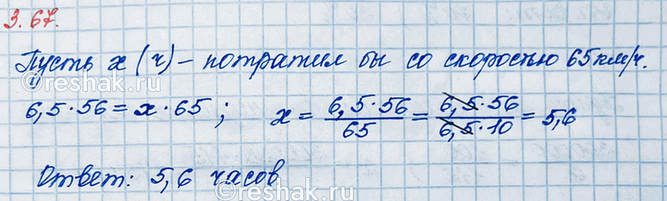 3.67.
Пусть x (ч) – потратил бы со скоростью 65 км/ч.
1) 6,5·56 = x·65 ; x = 6,5·56/65 = 6,5·56/6,5·10 = 5,6
Ответ: 5,6 часов
©reshak.ru